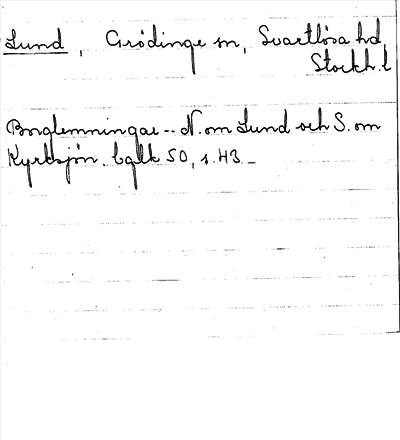 Lund, Grödinge sn, Svartlösa hd,
Stockh. l
Borglemningar -- N. om Lund och S. om
Kyrksjön. bqlk 50, s. 43 –